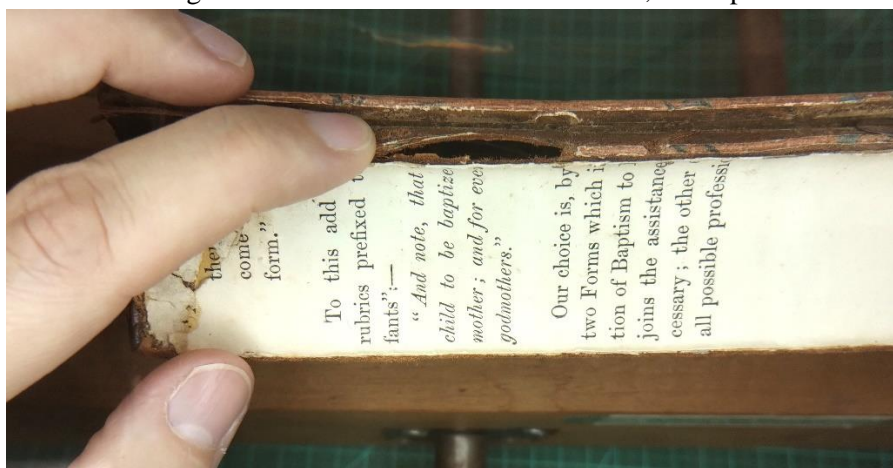 the
come
form."
To this add
rubrics prefixed t
fants":—
"And note, that
child to be baptize
mother; and for eve
godmothers."
Our choice is, by
two Forms which i
tion of Baptism to
joins the assistance
cessary; the other
all possible professi